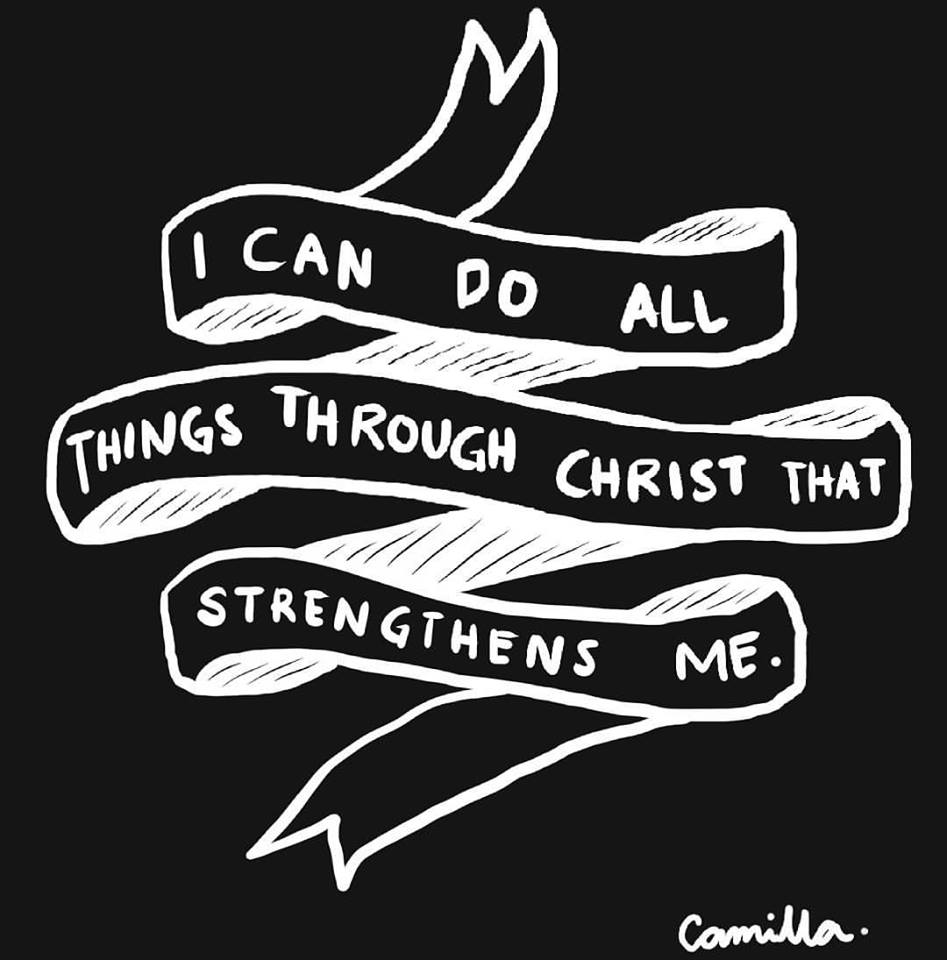 I CAN DO ALL
THINGS THROUGH CHRIST THAT
STRENGTHENS ME.
Camilla.